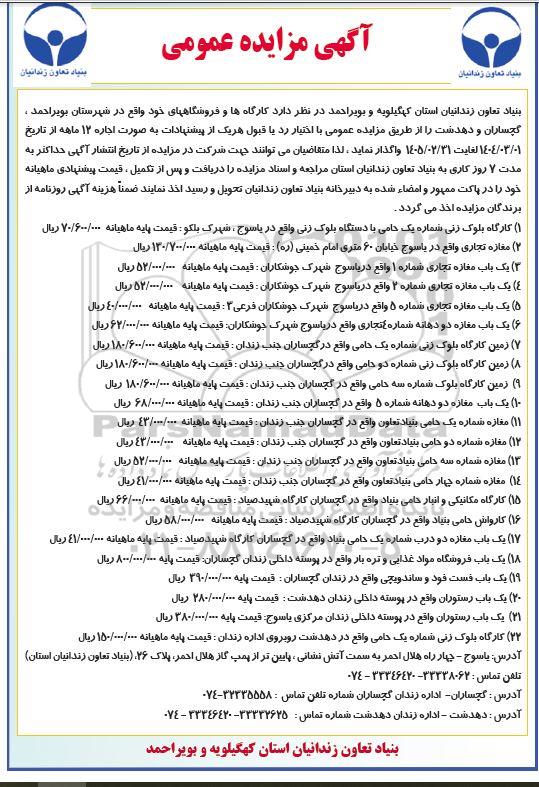 آگهی مزایده عمومی
بنیاد تعاون زندانیان
بنیاد تعاون زندانیان
بنیاد تعاون زندانیان استان کهگیلویه و بویراحمد در نظر دارد کارگاه ها و فروشگاههای خود واقع در شهرستان بویراحمد ،
گچساران و دهدشت را از طریق مزایده عمومی با اختیار رد یا قبول هریک از پیشنهادات به صورت اجاره ۱۲ ماهه از تاریخ
۱۴۰۴/۰۳/۰۱ لغایت ۱۴۰۵/۰۲/۳۱ واگذار نماید ، لذا متقاضیان می توانند جهت شرکت در مزایده از تاریخ انتشار آگهی حداکثر به
مدت ۷ روز کاری به بنیاد تعاون زندانیان استان مراجعه و اسناد مزایده را دریافت و پس از تکمیل ، قیمت پیشنهادی ماهیانه
خود را در پاکت ممهور و امضاء شده به دبیرخانه بنیاد تعاون زندانیان تحویل و رسید اخذ نمایند ضمناً هزینه آگهی روزنامه از
برندگان مزایده اخذ می گردد .
۱) کارگاه بلوک زنی شماره یک حامی با دستگاه بلوک زنی واقع در یاسوج ، شهرک بلکو : قیمت پایه ماهیانه ۷۰/۶۰۰/۰۰۰ ریال
۲) مغازه تجاری واقع در یاسوج خیابان ۶۰ متری امام خمینی (ره) : قیمت پایه ماهیانه ۱۳۰/۷۰۰/۰۰۰ ریال
۳) یک باب مغازه تجاری شماره ۱ واقع دریاسوج شهرک جوشکاران : قیمت پایه ماهیانه ۵۲/۰۰۰/۰۰۰ ریال
۴) یک باب مغازه تجاری شماره ۲ واقع دریاسوج شهرک جوشکاران : قیمت پایه ماهیانه ۵۲/۰۰۰/۰۰۰ ریال
۵) یک باب مغازه تجاری شماره ۵ واقع دریاسوج شهرک جوشکاران فرعی۳ : قیمت پایه ماهیانه ۴۰/۰۰۰/۰۰۰ ریال
۶) یک باب مغازه دو دهانه شماره۴تجاری واقع دریاسوج شهرک جوشکاران: قیمت پایه ماهیانه ۶۲/۰۰۰/۰۰۰ ریال
۷) زمین کارگاه بلوک زنی شماره یک حامی واقع درگچساران جنب زندان : قیمت پایه ماهیانه ۱۸۰/۶۰۰/۰۰۰ ریال
۸) زمین کارگاه بلوک زنی شماره دو حامی واقع در گچساران جنب زندان : قیمت پایه ماهیانه ۱۸۰/۶۰۰/۰۰۰ ریال
۹) زمین کارگاه بلوک شماره سه حامی واقع در گچساران جنب زندان : قیمت پایه ماهیانه ۱۸۰/۶۰۰/۰۰۰ ریال
۱۰) یک باب مغازه دو دهانه شماره ۵ واقع در گچساران جنب زندان : قیمت پایه ماهیانه ۶۸/۰۰۰/۰۰۰ ریال
۱۱) مغازه شماره یک حامی بنیادتعاون واقع در گچساران جنب زندان : قیمت پایه ماهیانه ۴۳/۰۰۰/۰۰۰ ریال
۱۲) مغازه شماره دو حامی بنیادتعاون واقع در گچساران جنب زندان : قیمت پایه ماهیانه ۴۳/۰۰۰/۰۰۰ ریال
۱۳) مغازه شماره سه حامی بنیادتعاون واقع در گچساران جنب زندان : قیمت پایه ماهیانه ۵۲/۰۰۰/۰۰۰ ریال
۱۴) مغازه شماره چهار حامی بنیادتعاون واقع در گچساران جنب زندان : قیمت پایه ماهیانه ۴۱/۰۰۰/۰۰۰ ریال
۱۵) کارگاه مکانیکی و انبار حامی بنیاد واقع در گچساران کارگاه شهیدصیاد : قیمت پایه ماهیانه ۶۶/۰۰۰/۰۰۰ ریال
۱۶) کارواش حامی بنیاد واقع در گچساران کارگاه شهیدصیاد : قیمت پایه ماهیانه ۵۸/۰۰۰/۰۰۰ ریال
۱۷) یک باب مغازه دو درب شماره یک حامی بنیاد واقع در گچساران کارگاه شهیدصیاد : قیمت پایه ماهیانه ۴۱/۰۰۰/۰۰۰ ریال
۱۸) یک باب فروشگاه مواد غذایی و تره بار واقع در پوسته داخلی زندان گچساران: قیمت پایه ۸۰۰/۰۰۰/۰۰۰ ریال
۱۹) یک باب فست فود و ساندویچی واقع در زندان گچساران : قیمت پایه ۳۹۰/۰۰۰/۰۰۰ ریال
۲۰) یک باب رستوران واقع در پوسته داخلی زندان دهدشت : قیمت پایه ۲۸۰/۰۰۰/۰۰۰ ریال
۲۱) یک باب رستوران واقع در پوسته داخلی زندان مرکزی یاسوج: قیمت پایه ۳۸۰/۰۰۰/۰۰۰ ریال
۲۲) کارگاه بلوک زنی شماره یک حامی واقع در دهدشت روبروی اداره زندان : قیمت پایه ماهیانه ۱۵۰/۰۰۰/۰۰۰ ریال
آدرس: یاسوج - چهار راه هلال احمر به سمت آتش نشانی ، پایین تر از پمپ گاز هلال احمر، پلاک ۲۶، (بنیاد تعاون زندانیان استان)
تلفن تماس : ۳۳۳۳۸۰۶۲- ۳۳۳۴۶۴۲۰ - ۰۷۴
آدرس : گچساران- اداره زندان گچساران شماره تلفن تماس : ۳۲۳۳۵۵۵۸-۰۷۴
آدرس : دهدشت - اداره زندان دهدشت شماره تماس : ۳۳۳۳۲۶۲۵- ۳۳۳۴۶۴۲۰ - ۰۷۴
بنیاد تعاون زندانیان استان کهگیلویه و بویراحمد
ParsNamadData
پایگاه اطلاع رسانی مناقصه و مزایده
۰۲۱-۸۸۳۴۹۶۷۰-۵